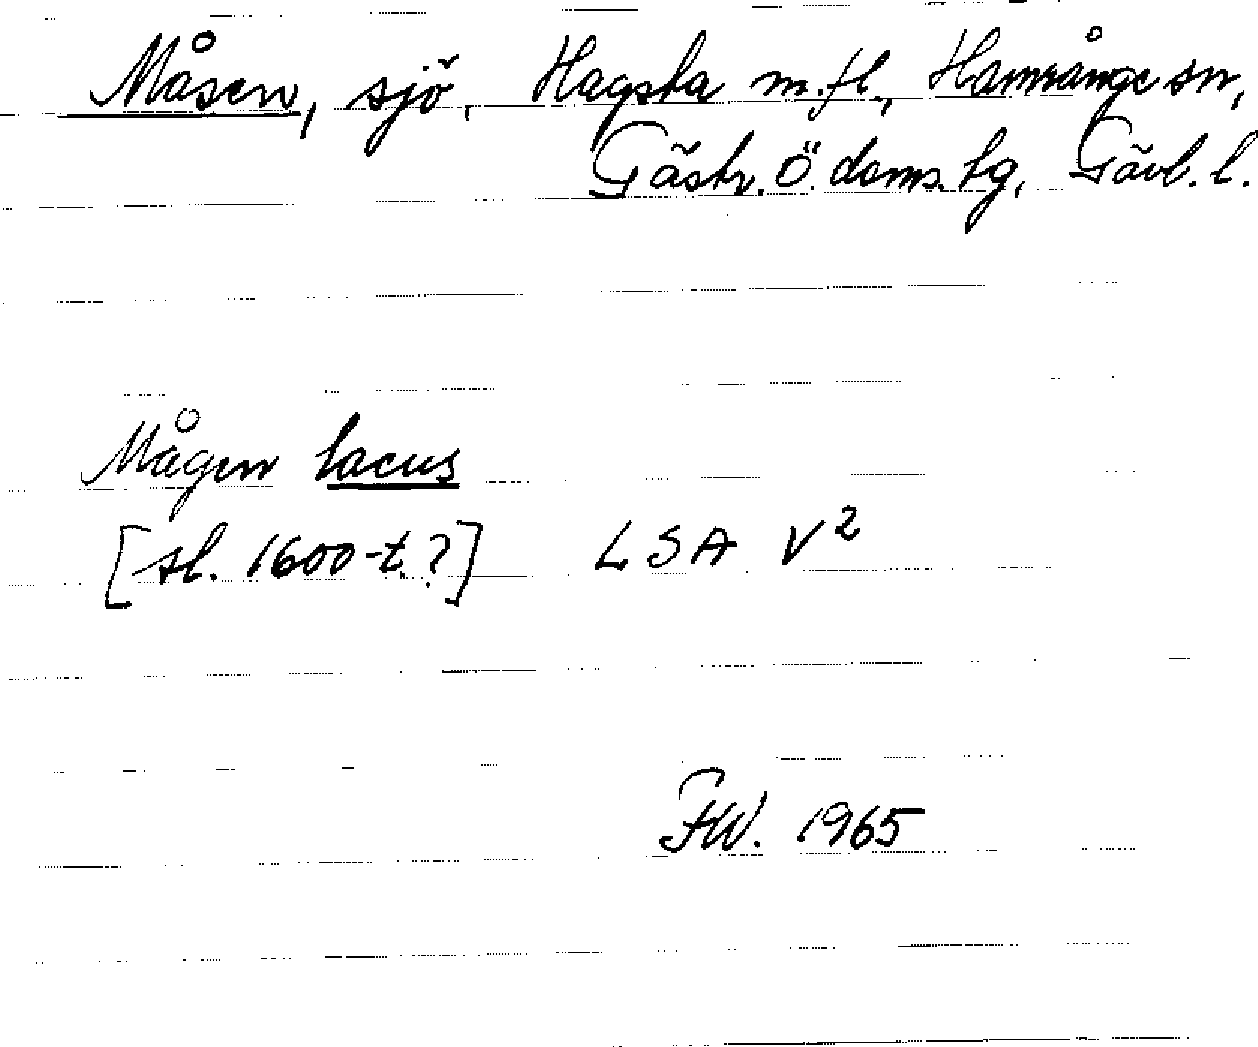 Måsen, sjö, Hagsta m.fl., Hamrånge sn,
Gästr. Ö. doms. tg, Gävl. l.
Mågen lacus
[sl. 1600-t.?] LSA V²
FW. 1965